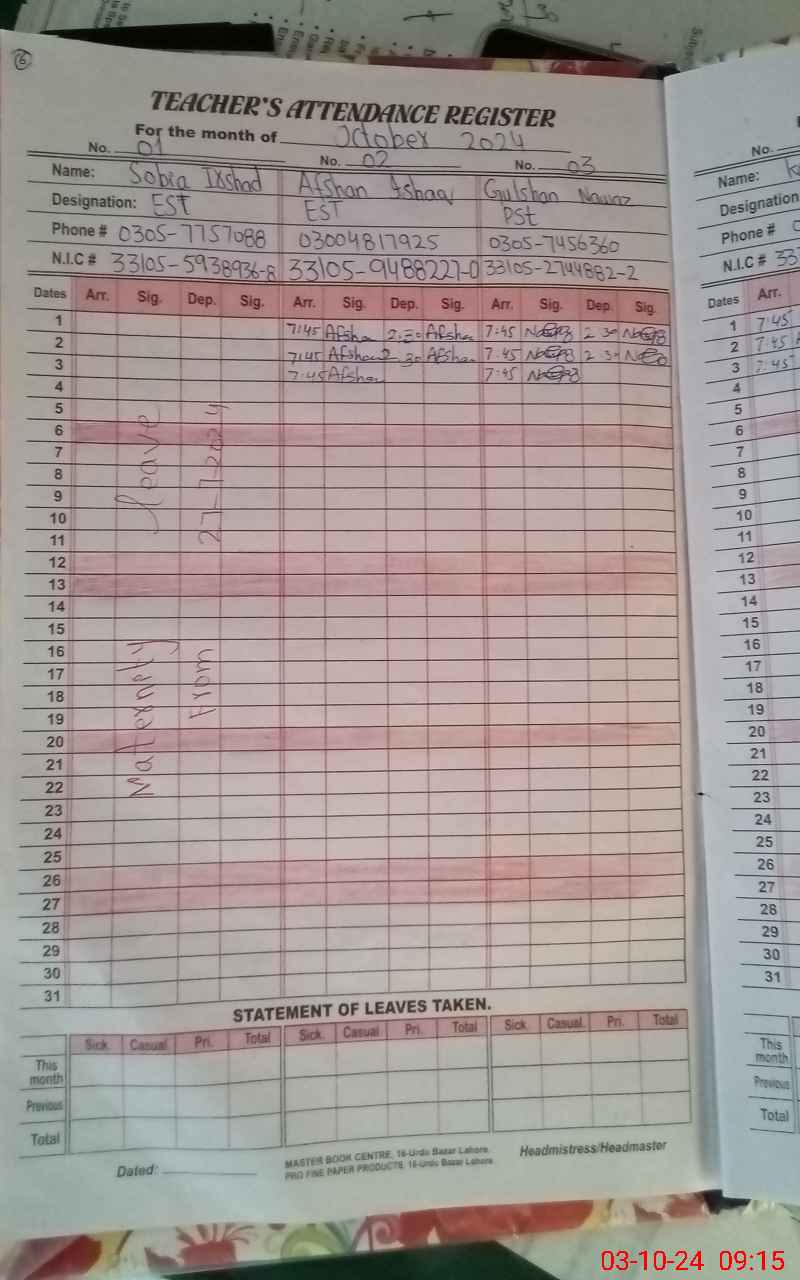 6
TEACHER'S ATTENDANCE REGISTER
For the month of October 2024
No. 01 No. 02 No. 03
Name: Sobia Irshad Afshan Ishaq Gulshan Nawaz
Designation: EST EST PSt
Phone # 0305-7757088 03004817925 0305-7456360
N.I.C # 33105-5938936-8 33105-9488227-0 33105-2744882-2
Dates Arr. Sig. Dep. Sig. Arr. Sig. Dep. Sig. Arr. Sig. Dep. Sig.
1 7:45 Afshan 2:30 Afshan 7:45 2 30
2 7:45 Afshan 2 30 Afshan 7:45 2 30
3 7:45 Afshan 7:45
4
5
6
7
8
9
10
11
12
13
14
15
16
17
18
19
20
21
22
23
24
25
26
27
28
29
30
31
Maternity leave
From 27-7-2024
STATEMENT OF LEAVES TAKEN.
Sick Casual Pri. Total Sick. Casual Pri. Total Sick. Casual. Pri. Total
This month
Previous
Total
Dated:
MASTER BOOK CENTRE, 16-Urdu Bazar Lahore.
PRO FINE PAPER PRODUCTS, 16-Urdu Bazar Lahore.
Headmistress/Headmaster
No.
Name:
Designation
Phone #
N.I.C # 33
Dates Arr.
1 7:45
2 7:45
3 7:45
4
5
6
7
8
9
10
11
12
13
14
15
16
17
18
19
20
21
22
23
24
25
26
27
28
29
30
31
This month
Previous
Total
03-10-24 09:15